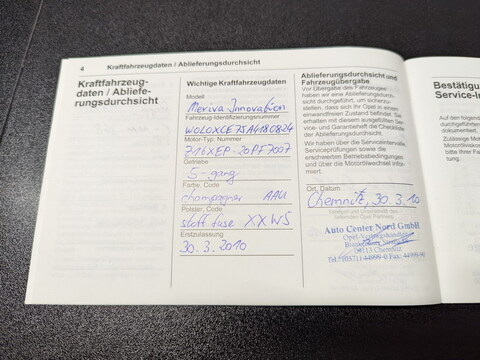 4
Kraftfahrzeugdaten / Ablieferungsdurchsicht
Kraftfahrzeug-
daten / Abliefe-
rungsdurchsicht
Wichtige Kraftfahrzeugdaten
Modell
Meriva Innovation
Fahrzeug-Identifizierungsnummer
W0L0XCE75A4180824
Motor-Typ, Nummer
Z16XEP-20PF7007
Getriebe
5-gang
Farbe, Code
champagner AAU
Polster, Code
stoff fuse XXWS
Erstzulassung
30.3.2010
Ablieferungsdurchsicht und
Fahrzeugübergabe
Vor Übergabe des Fahrzeuges
haben wir eine Ablieferungsdurch-
sicht durchgeführt, um sicherzu-
stellen, dass sich Ihr Opel in einem
einwandfreien Zustand befindet. Sie
erhalten mit diesem ausgefüllten Ser-
vice- und Garantieheft die Checkliste
der Ablieferungsdurchsicht.
Wir haben Sie über die Serviceintervalle,
Serviceprüfungen sowie die
erschwerten Betriebsbedingungen
und über die Motorölwechsel infor-
miert.
Ort, Datum
Chemnitz, 30.3.10
Auto Center Nord GmbH
Opel-Vertragshändler
09113 Chemnitz
Bestätigu
Service-In
Auf den folgen
durchgeführten
dokumentiert.
Zulässige Moto
Motorölviskos
dem Kapitel
Ihrer Fahrze